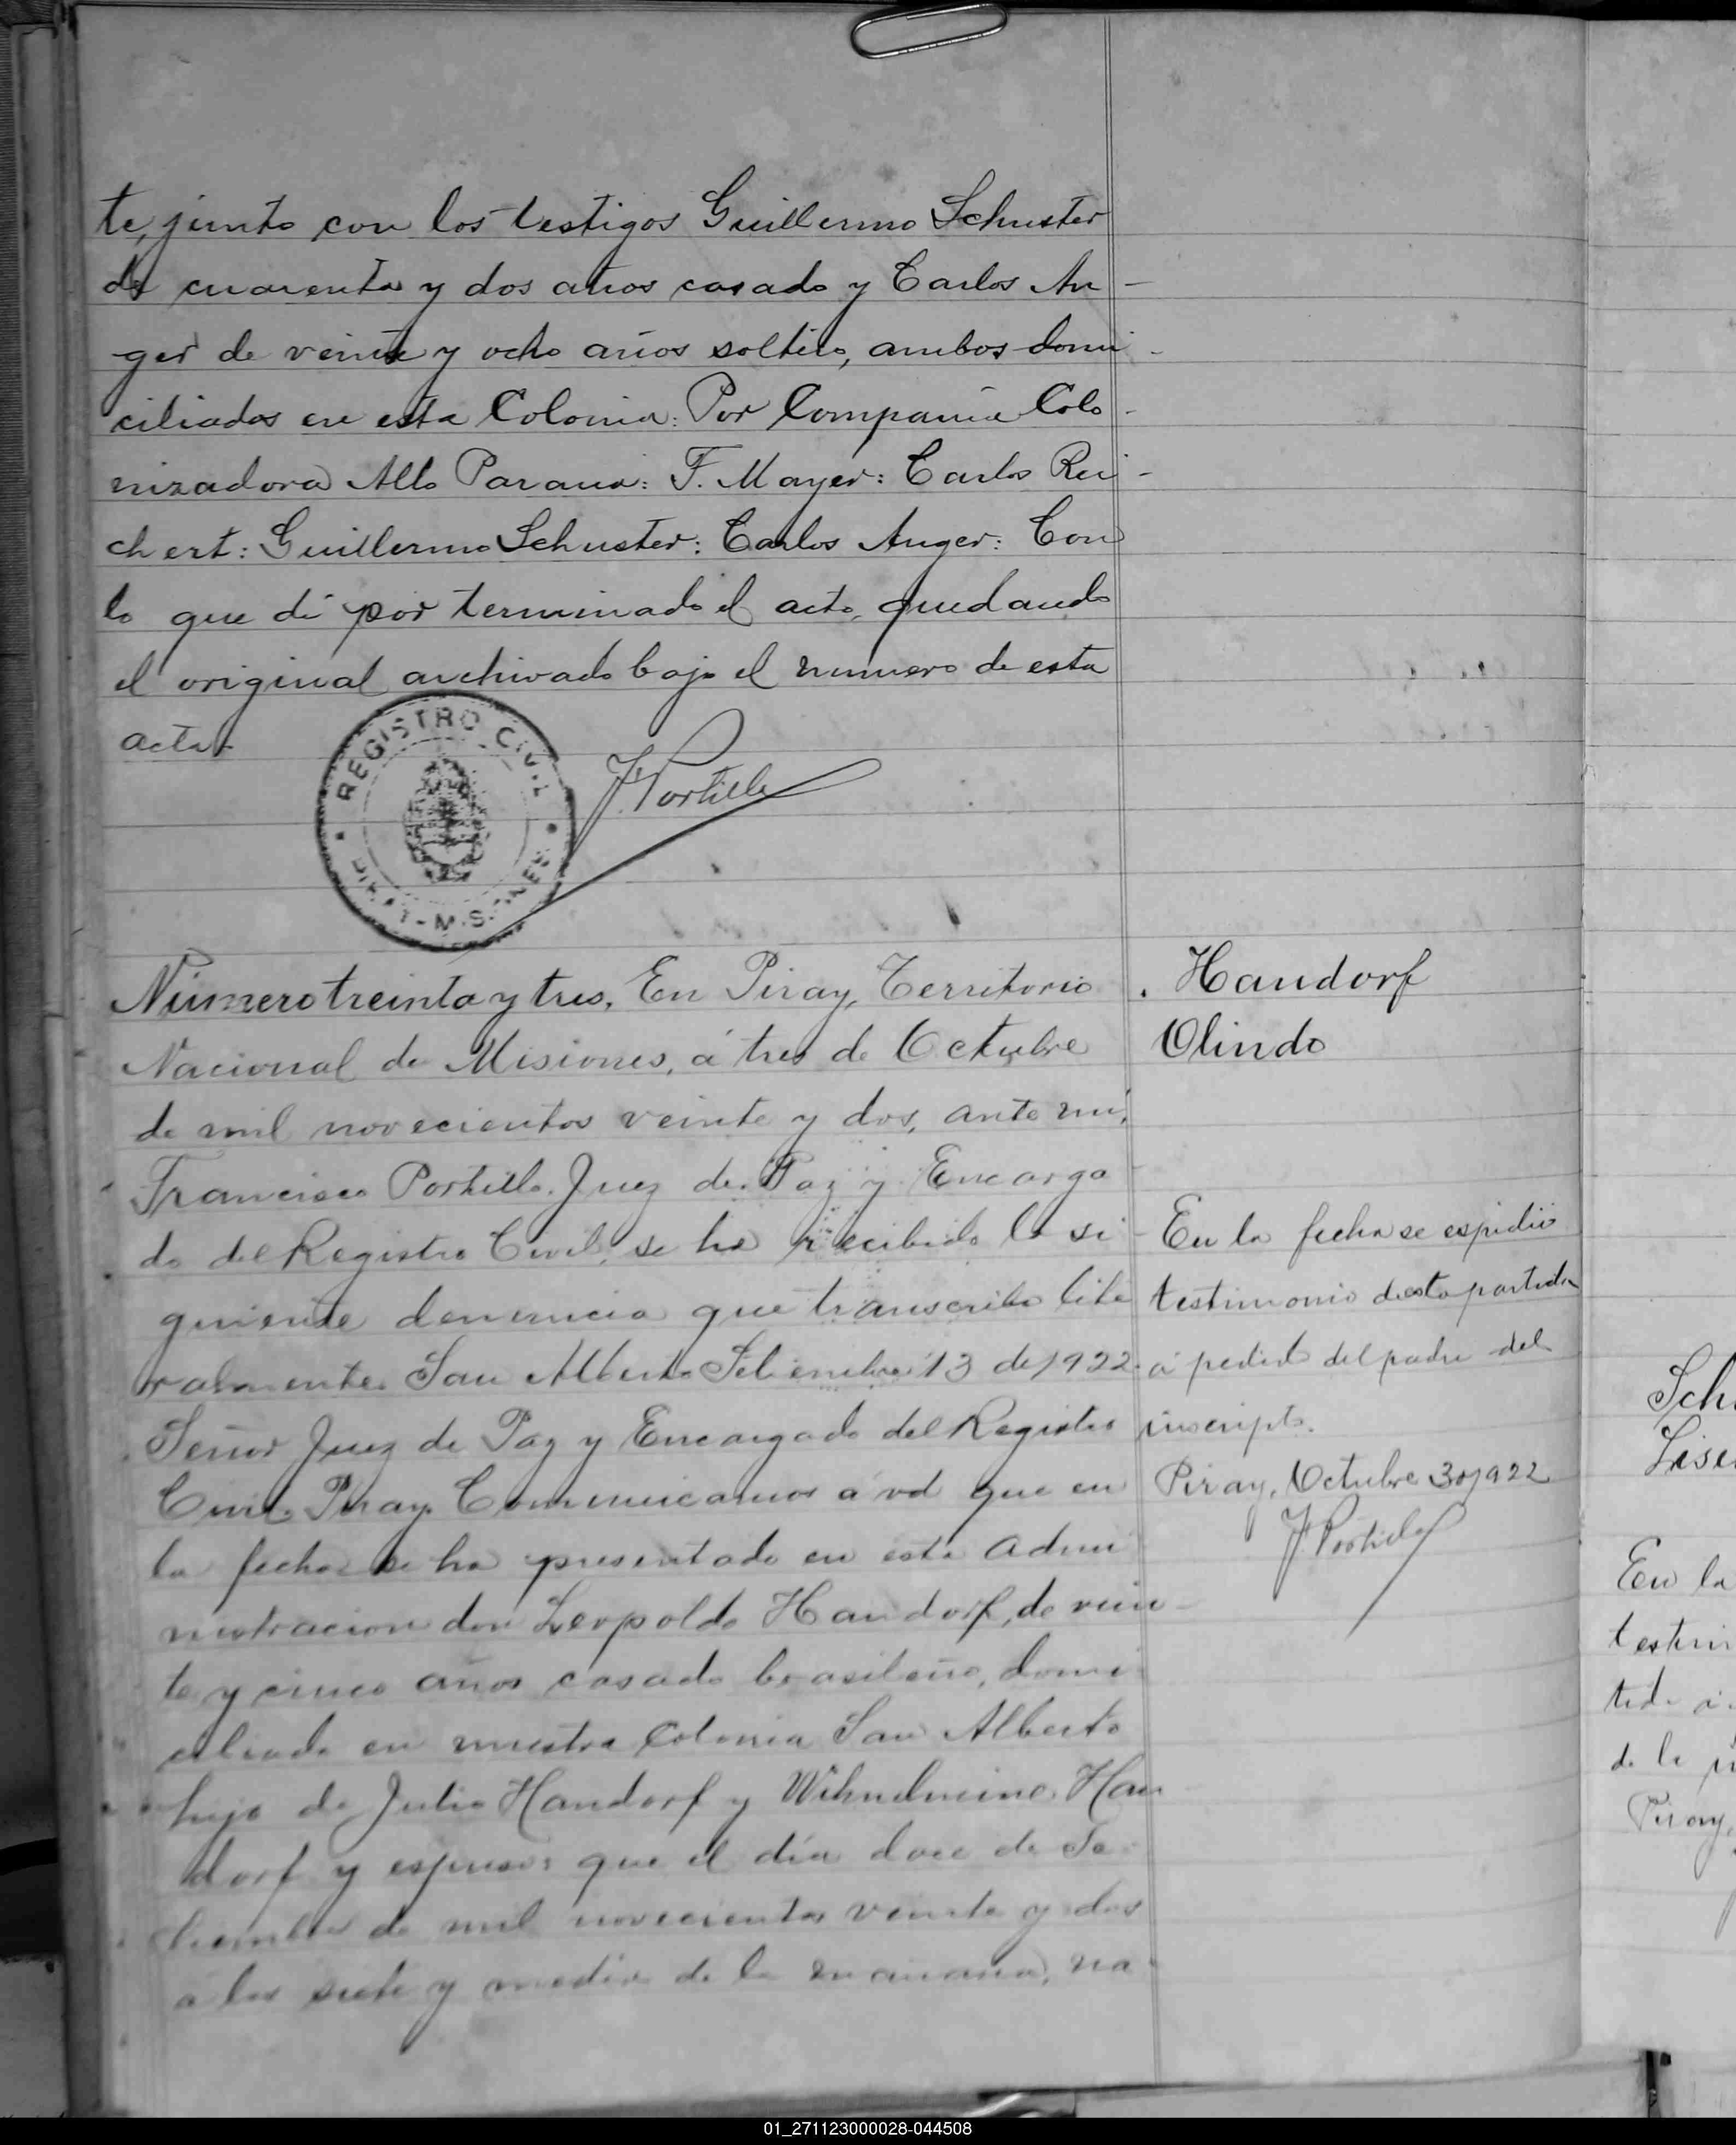 te, junto con los testigos Guillermo Schuster
de cuarenta y dos años casado y Carlos An-
ger de veinte y ocho años soltero, ambos domi-
ciliados en esta Colonia: Por Compañia Colo-
nizadora Alto Paraná: F. Mayer: Carlos Rei-
chert: Guillermo Schuster: Carlos Anger: Con
lo que dí por terminado el acto, quedando
el original archivado bajo el numero de esta
acta.-
REGISTRO CIVIL
MISIONES
F. Portillo
Número treinta y tres, En Piray, Territorio
Nacional de Misiones, á tres de Octubre
de mil novecientos veinte y dos, ante mi,
Francisco Portillo, Juez de Paz y Encarga
do del Registro Civil, se ha recibido la si-
guiente denuncia que transcribo lite
ralmente. San Alberto Setiembre 13 de 1922.
Señor Juez de Paz y Encargado del Registro
Civil. Piray. Comunicamos á vd que en
la fecha se ha presentado en esta admi
nistracion don Leopoldo Handorf, de vein-
te y cinco años casado brasileño, domi
ciliado en nuestra Colonia San Alberto
hijo de Julio Handorf y Wihndmine Han
dorf y espuso: que el día doce de Se-
tiembre de mil novecientos veinte y dos
a las siete y media de la mañana, na-
Handorf
Olindo
En la fecha se espidió
testimonio de esta partida
á pedido del padre del
inscripto.
Piray, Octubre 3 de 1922
F. Portillo
Sch
Lise
En la
testim
de la
Piray,